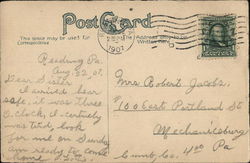 Post Card
This space may be used for
Correspondence
Address only to be
Written Here
1907
Reading Pa.
Aug. 22, 07.
Dear Sister
I arrived here
safe, it was three
O.clock, I certainly
was tired, look
for me on Sunday
am ready to come
home
Mrs. Robert Jacobs,
700 East Portland St
Mechanicsburg
Cumb. Co. Pa